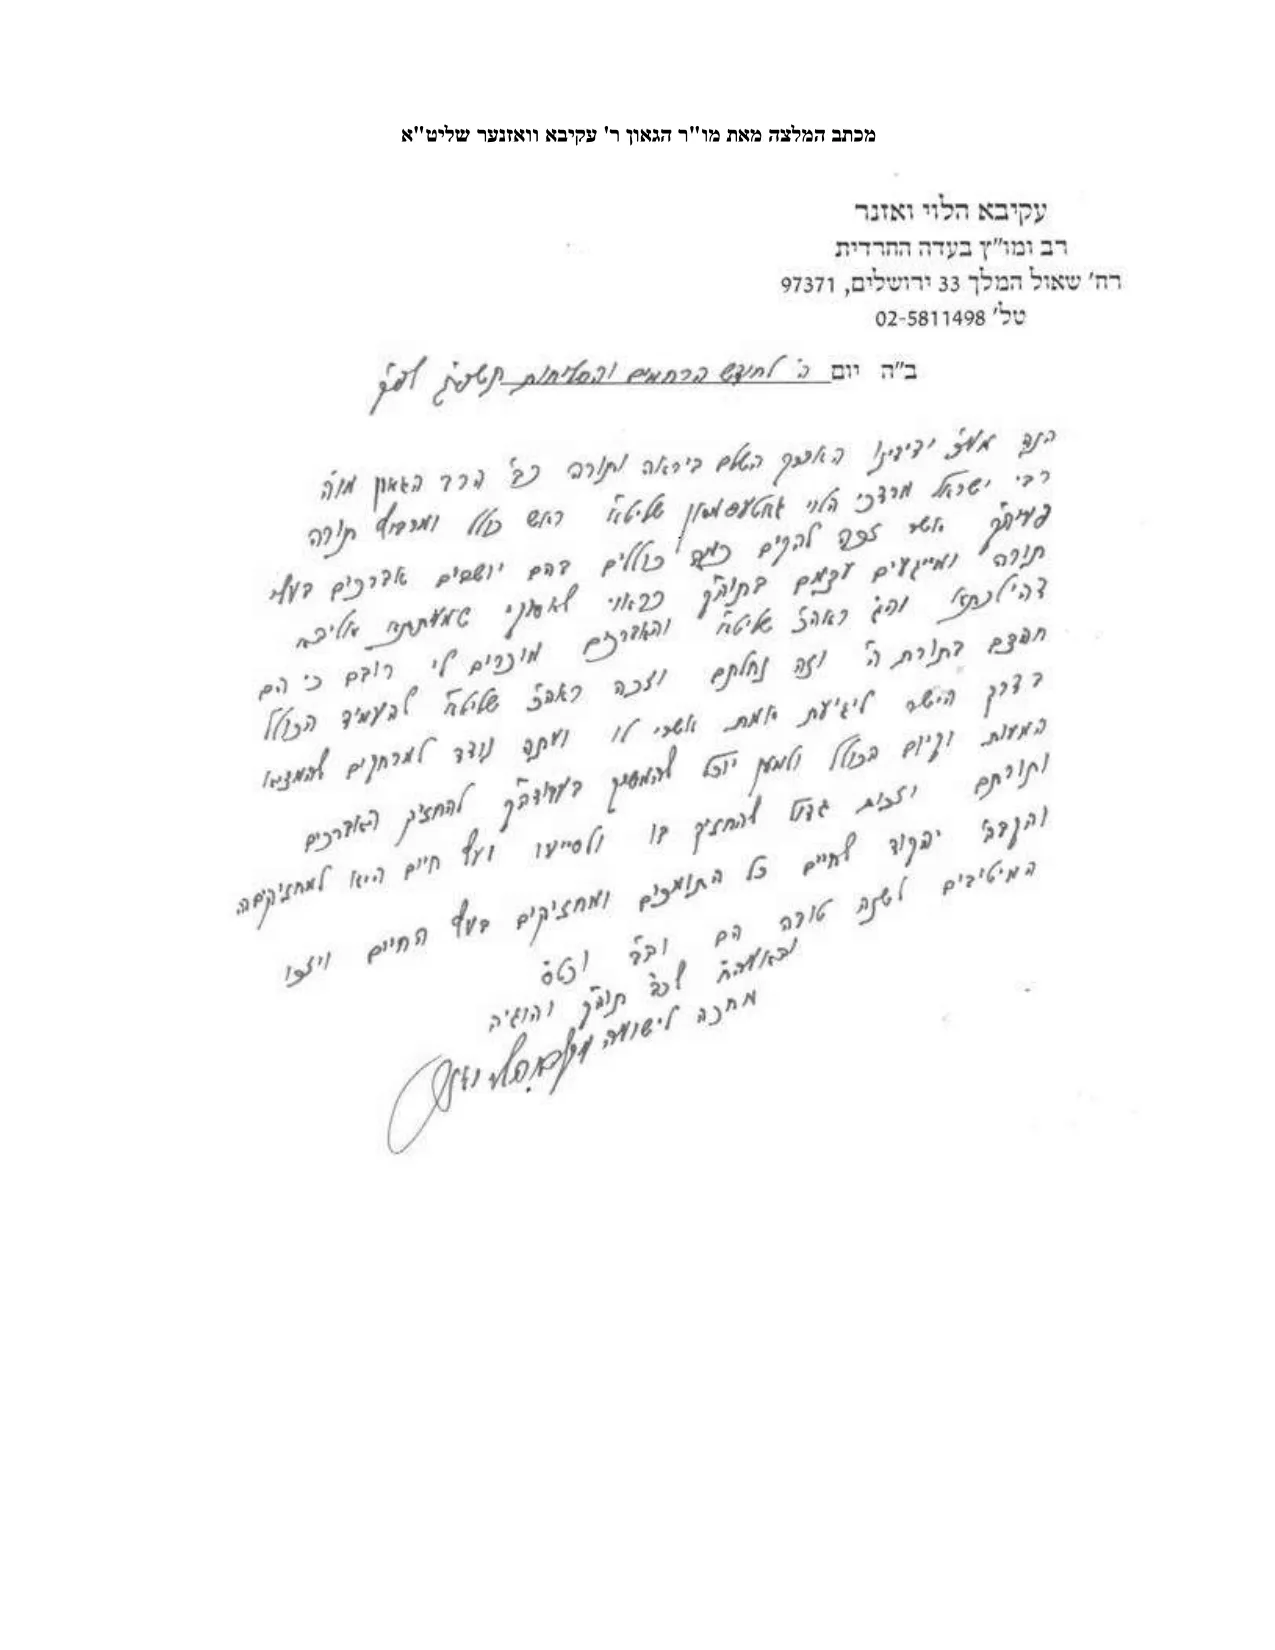 מכתב המלצה מאת מו"ר הגאון ר' עקיבא וואזנער שליט"א
עקיבא הלוי ואזנר
רב ומו"ץ בעדה החרדית
רח' שאול המלך 33 ירושלים, 97371
טל' 02-5811498
ב"ה יום ה' לחודש הרחמים והסליחות לפ"ק
הנה ידידינו השלם ביראה ותורה כב' הרב הגאון מוה'
רבי ישראל מרדכי הלוי שליט"א ראש כולל ומרביץ תורה
פעיה"ק אשר זכה להקים כמה כוללים בהם יושבים אברכים בעלי
תורה ומייגעים עצמם בתוה"ק כראוי לאסוקי שמעתתא אליבא
דהילכתא והנ' ראה"כ שליט"א והאברכים מוכרים לי רובם כי הם
חפצם בתורת ה' וזה נחלתם וזכה ראה"כ שליט"א להעמיד הכולל
בדרך הישר ליגיעת אמת אשרי לו ועתה נודד למרחקים להמציא
המעות וקיום הכולל ולמען יוכל להמשיך בעבודה"ק להחזיק האברכים
ותורתם וזכות גדול להחזיק בו ולסייעו ועץ חיים היא למחזיקים בה
והקב"ה יפקוד לחיים כל התומכים ומחזיקים בעץ החיים ויזכו
המיטיבים לשנה טובה הם וב"ב וכט"ס
ובאעה"ח לכב' תוה"ק והוגיה
מחכה לישועה עקיבא הלוי ואזנר